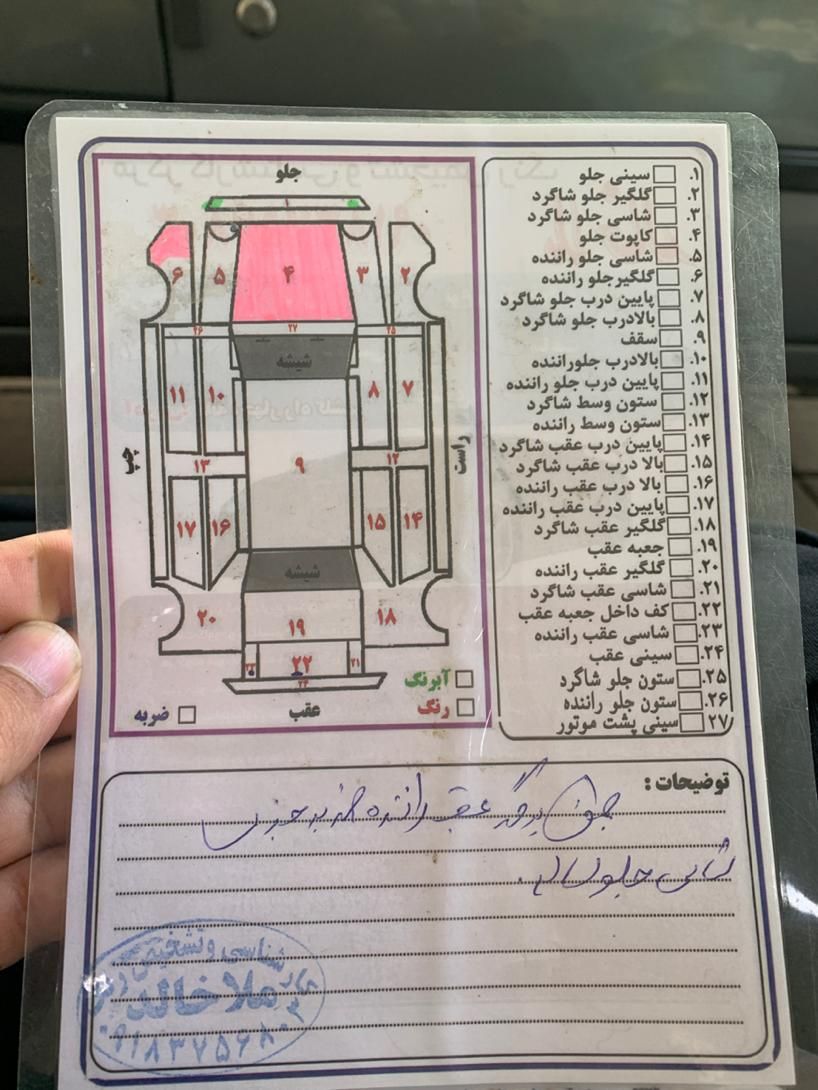 جلو
۱
۶
۵
۴
۳
۲
۲۶
۲۷
۲۵
شیشه
۱۱
۱۰
۸
۷
چپ
۹
راست
۱۳
۱۲
۱۷
۱۶
۱۵
۱۴
شیشه
۲۰
۱۹
۱۸
۲۳
۲۲
۲۱
۲۴
عقب
آبرنگ
رنگ
ضربه
۱. سینی جلو
۲. گلگیر جلو شاگرد
۳. شاسی جلو شاگرد
۴. کاپوت جلو
۵. شاسی جلو راننده
۶. گلگیرجلو راننده
۷. پایین درب جلو شاگرد
۸. بالادرب جلو شاگرد
۹. سقف
۱۰. بالادرب جلوراننده
۱۱. پایین درب جلو راننده
۱۲. ستون وسط شاگرد
۱۳. ستون وسط راننده
۱۴. پایین درب عقب شاگرد
۱۵. بالا درب عقب شاگرد
۱۶. بالا درب عقب راننده
۱۷. پایین درب عقب راننده
۱۸. گلگیر عقب شاگرد
۱۹. جعبه عقب
۲۰. گلگیر عقب راننده
۲۱. شاسی عقب شاگرد
۲۲. کف داخل جعبه عقب
۲۳. شاسی عقب راننده
۲۴. سینی عقب
۲۵. ستون جلو شاگرد
۲۶. ستون جلو راننده
۲۷. سینی پشت موتور
توضیحات :
عقب راننده
جلو سالم
کارشناسی و تشخیص
ملا خالد